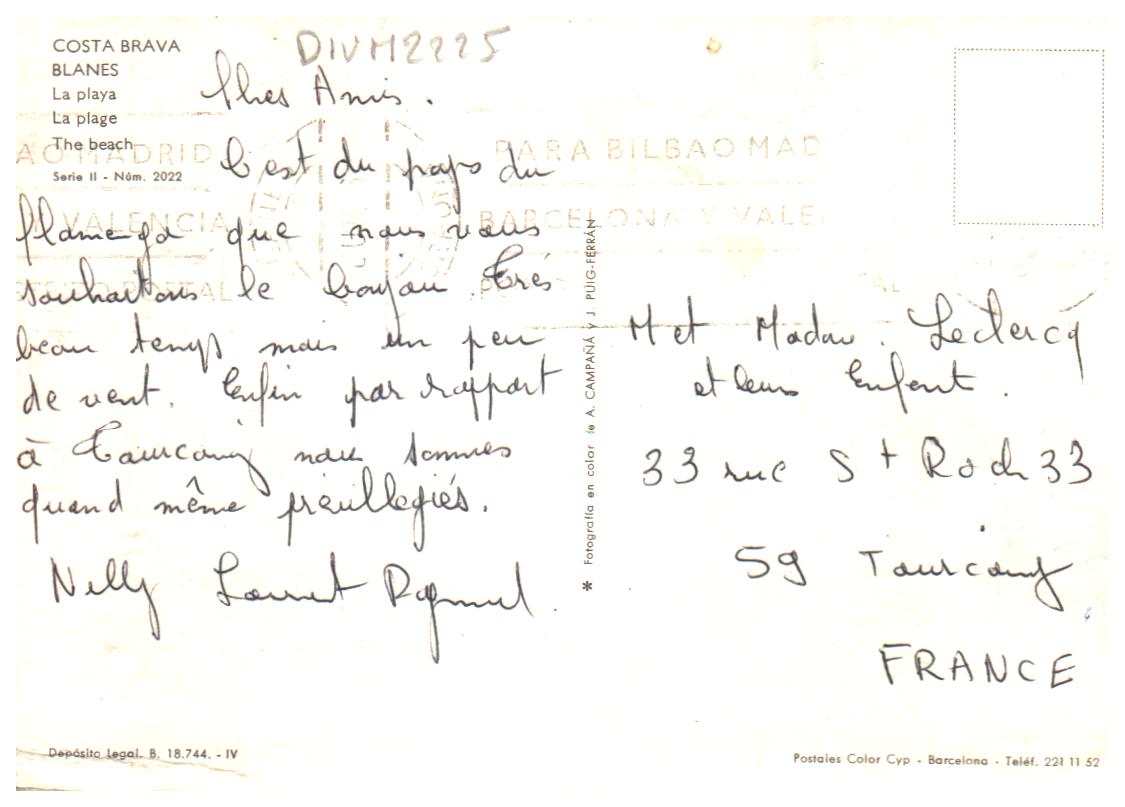 COSTA BRAVA
BLANES
La playa
La plage
The beach
Serie II - Núm. 2022
DIVM2225
Chers Amis.
C'est du pays du
flamenga que nous vous
souhaitons le bonjour. Très
beau temps mais un peu
de vent. Enfin par rapport
à Tourcoing nous sommes
quand même privillegiés.
Nelly Laurent Raymond.
AO MADRID
VALENCIA
POSTAL
PARA BILBAO MAD
BARCELONA Y VALE
AL
* Fotografía en color de A. CAMPAÑÁ y J. PUIG-FERRÁN
M et Madame Leclercq
et leurs Enfent.
33 rue St Roch 33
59 Tourcoing
FRANCE
Depósito Legal. B. 18.744. - IV
Postales Color Cyp - Barcelona - Teléf. 221 11 52